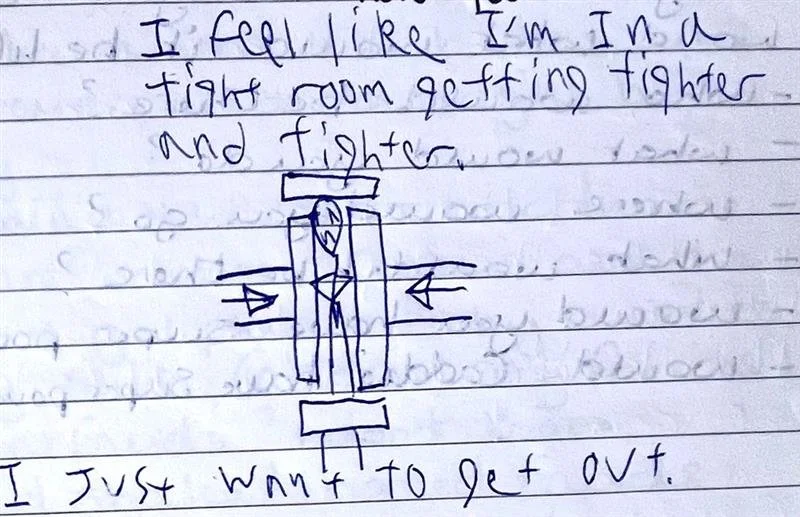 I feel like I'm In a
tight room getting tighter
and tighter.
I Just want to get out.